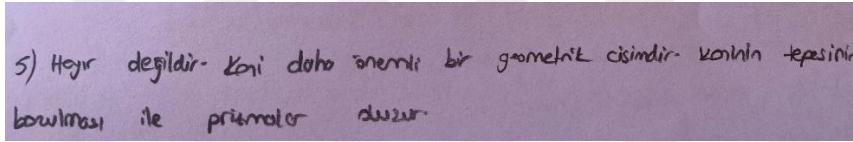 5) Hayır değildir. Koni daha önemli bir geometrik cisimdir. Koninin tepesinin
bozulması ile prizmalar oluşur.